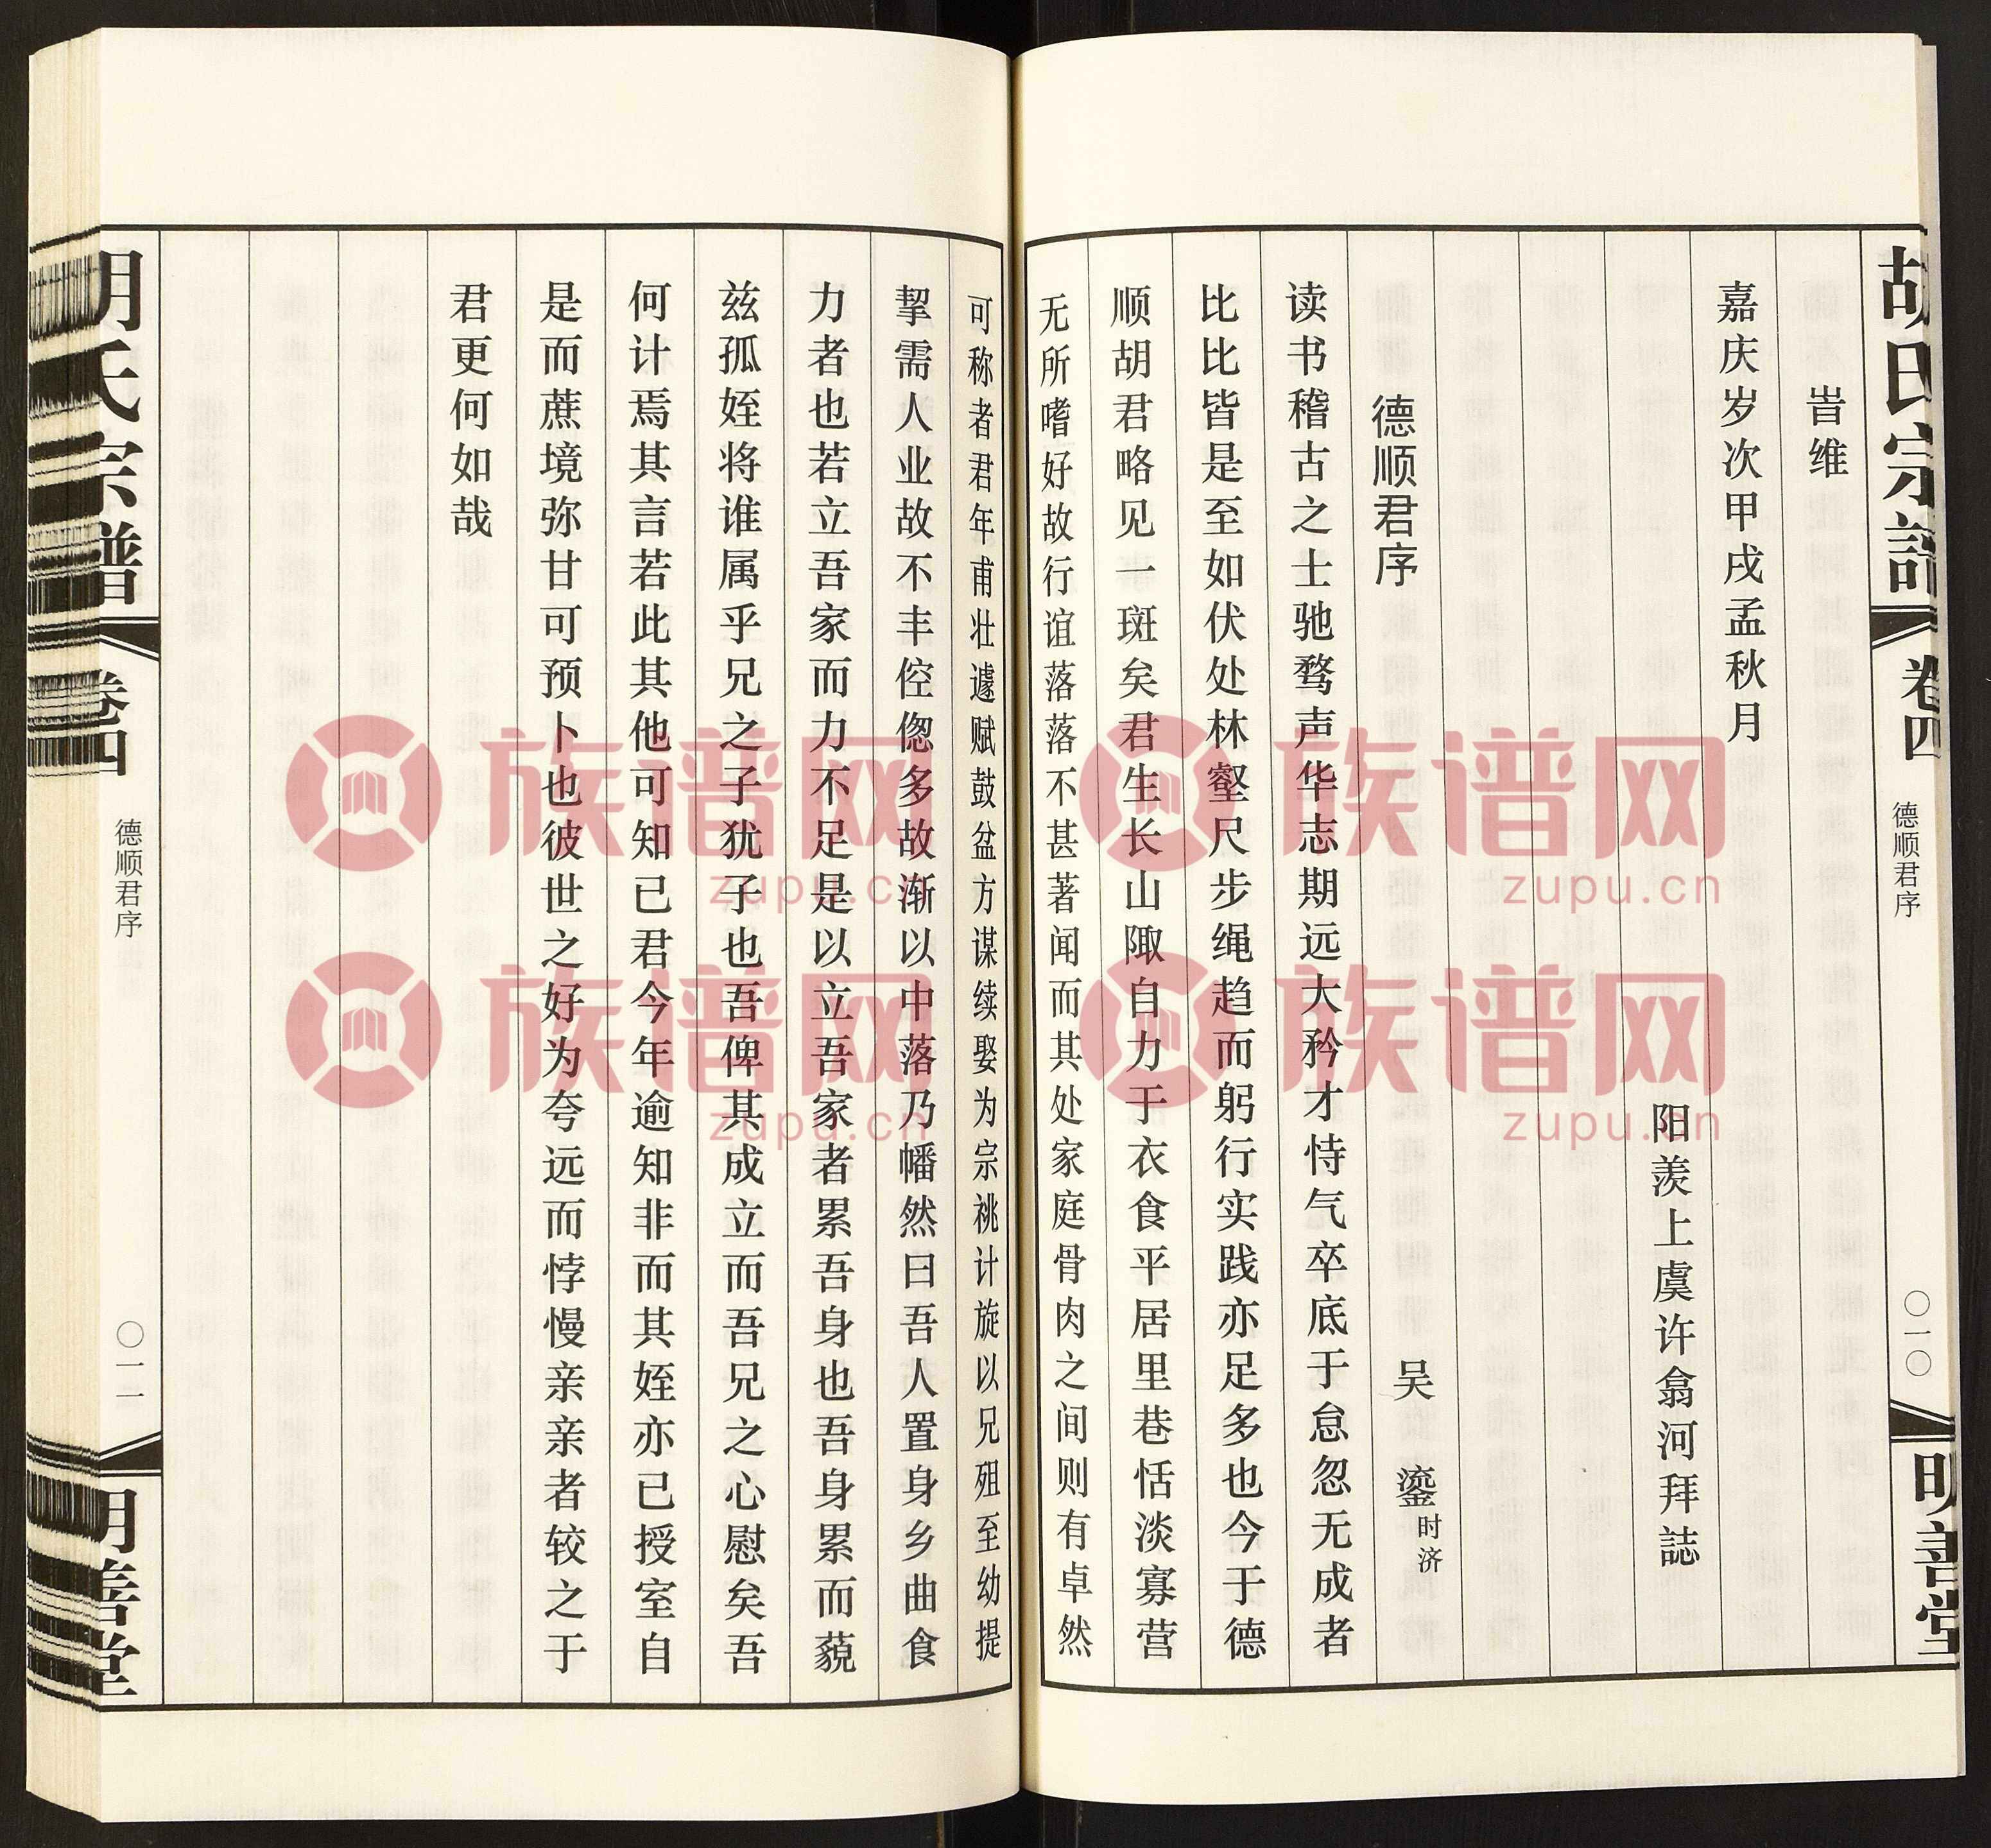 胡氏宗譜
卷四
德顺君序
〇一〇
明善堂
旹维
嘉庆岁次甲戌孟秋月
阳羡上虞许翕河拜誌
德顺君序
吴 鎏时济
读书稽古之士驰骛声华志期远大矜才恃气卒底于怠忽无成者
比比皆是至如伏处林壑尺步绳趋而躬行实践亦足多也今于德
顺胡君略见一斑矣君生长山陬自力于衣食平居里巷恬淡寡营
无所嗜好故行谊落落不甚著闻而其处家庭骨肉之间则有卓然
可称者君年甫壮遽赋鼓盆方谋续娶为宗祧计旋以兄殂至幼提
挈需人业故不丰倥偬多故渐以中落乃幡然曰吾人置身乡曲食
力者也若立吾家而力不足是以立吾家者累吾身也吾身累而藐
兹孤姪将谁属乎兄之子犹子也吾俾其成立而吾兄之心慰矣吾
何计焉其言若此其他可知已君今年逾知非而其姪亦已授室自
是而蔗境弥甘可预卜也彼世之好为夸远而悖慢亲亲者较之于
君更何如哉
胡氏宗譜
卷四
德顺君序
〇一一
明善堂
族谱网
zupu.cn
族谱网
zupu.cn
族谱网
zupu.cn
族谱网
zupu.cn